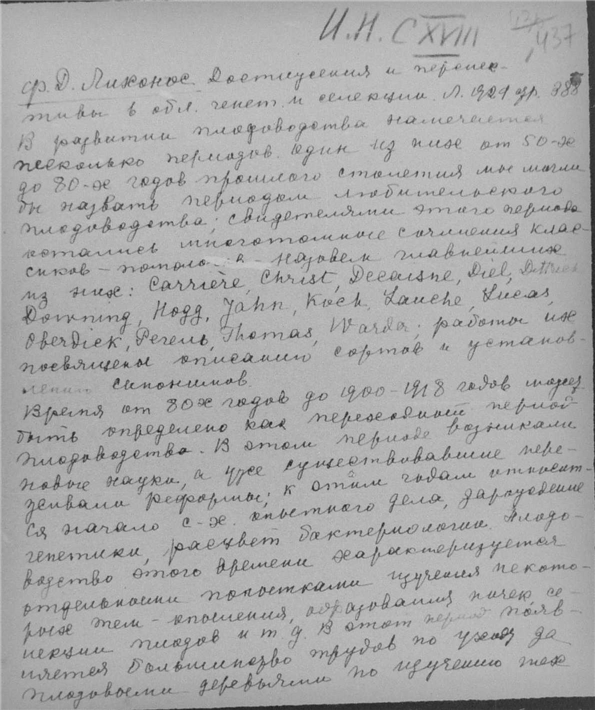 И.Н. С XVIII
437
ф. Д. Лихонос Достижения и перспек-
тивы в обл. генет. и селекции. Л. 1929 гр. 388
В развитии плодоводства намечается
несколько периодов. Один из них от 50-х
до 80-х годов прошлого столетия мы могли
бы назвать периодом любительского
плодоводства; свидетелями этого периода
остались многотомные сочинения клас-
сиков-помоло Назовем главнейших
из них: Carrière, Christ, Decaisne, Diel, Dittrich
Downing, Hogg, Jahn, Koch, Lauche, Lucas,
Oberdick, Регель, Thomas, Warder; работы их
посвящены описанию сортов и установ-
лению синонимов.
Время от 80х годов до 1900-1918 годов может
быть определено как переходный период
плодоводства. В этом периоде возникали
новые науки, а уже существовавшие пере-
живали реформы; к этим годам относит-
ся начало с-х. опытного дела, зарождение
генетики, расцвет бактериологии. Плодо-
водство этого времени характеризуется
отдельными попытками изучения некото-
рых тем - опыления, образования почек се-
лекции плодов и т. д. В этот период появ-
ляется большинство трудов по уходу за
плодовыми деревьями по изучению тех